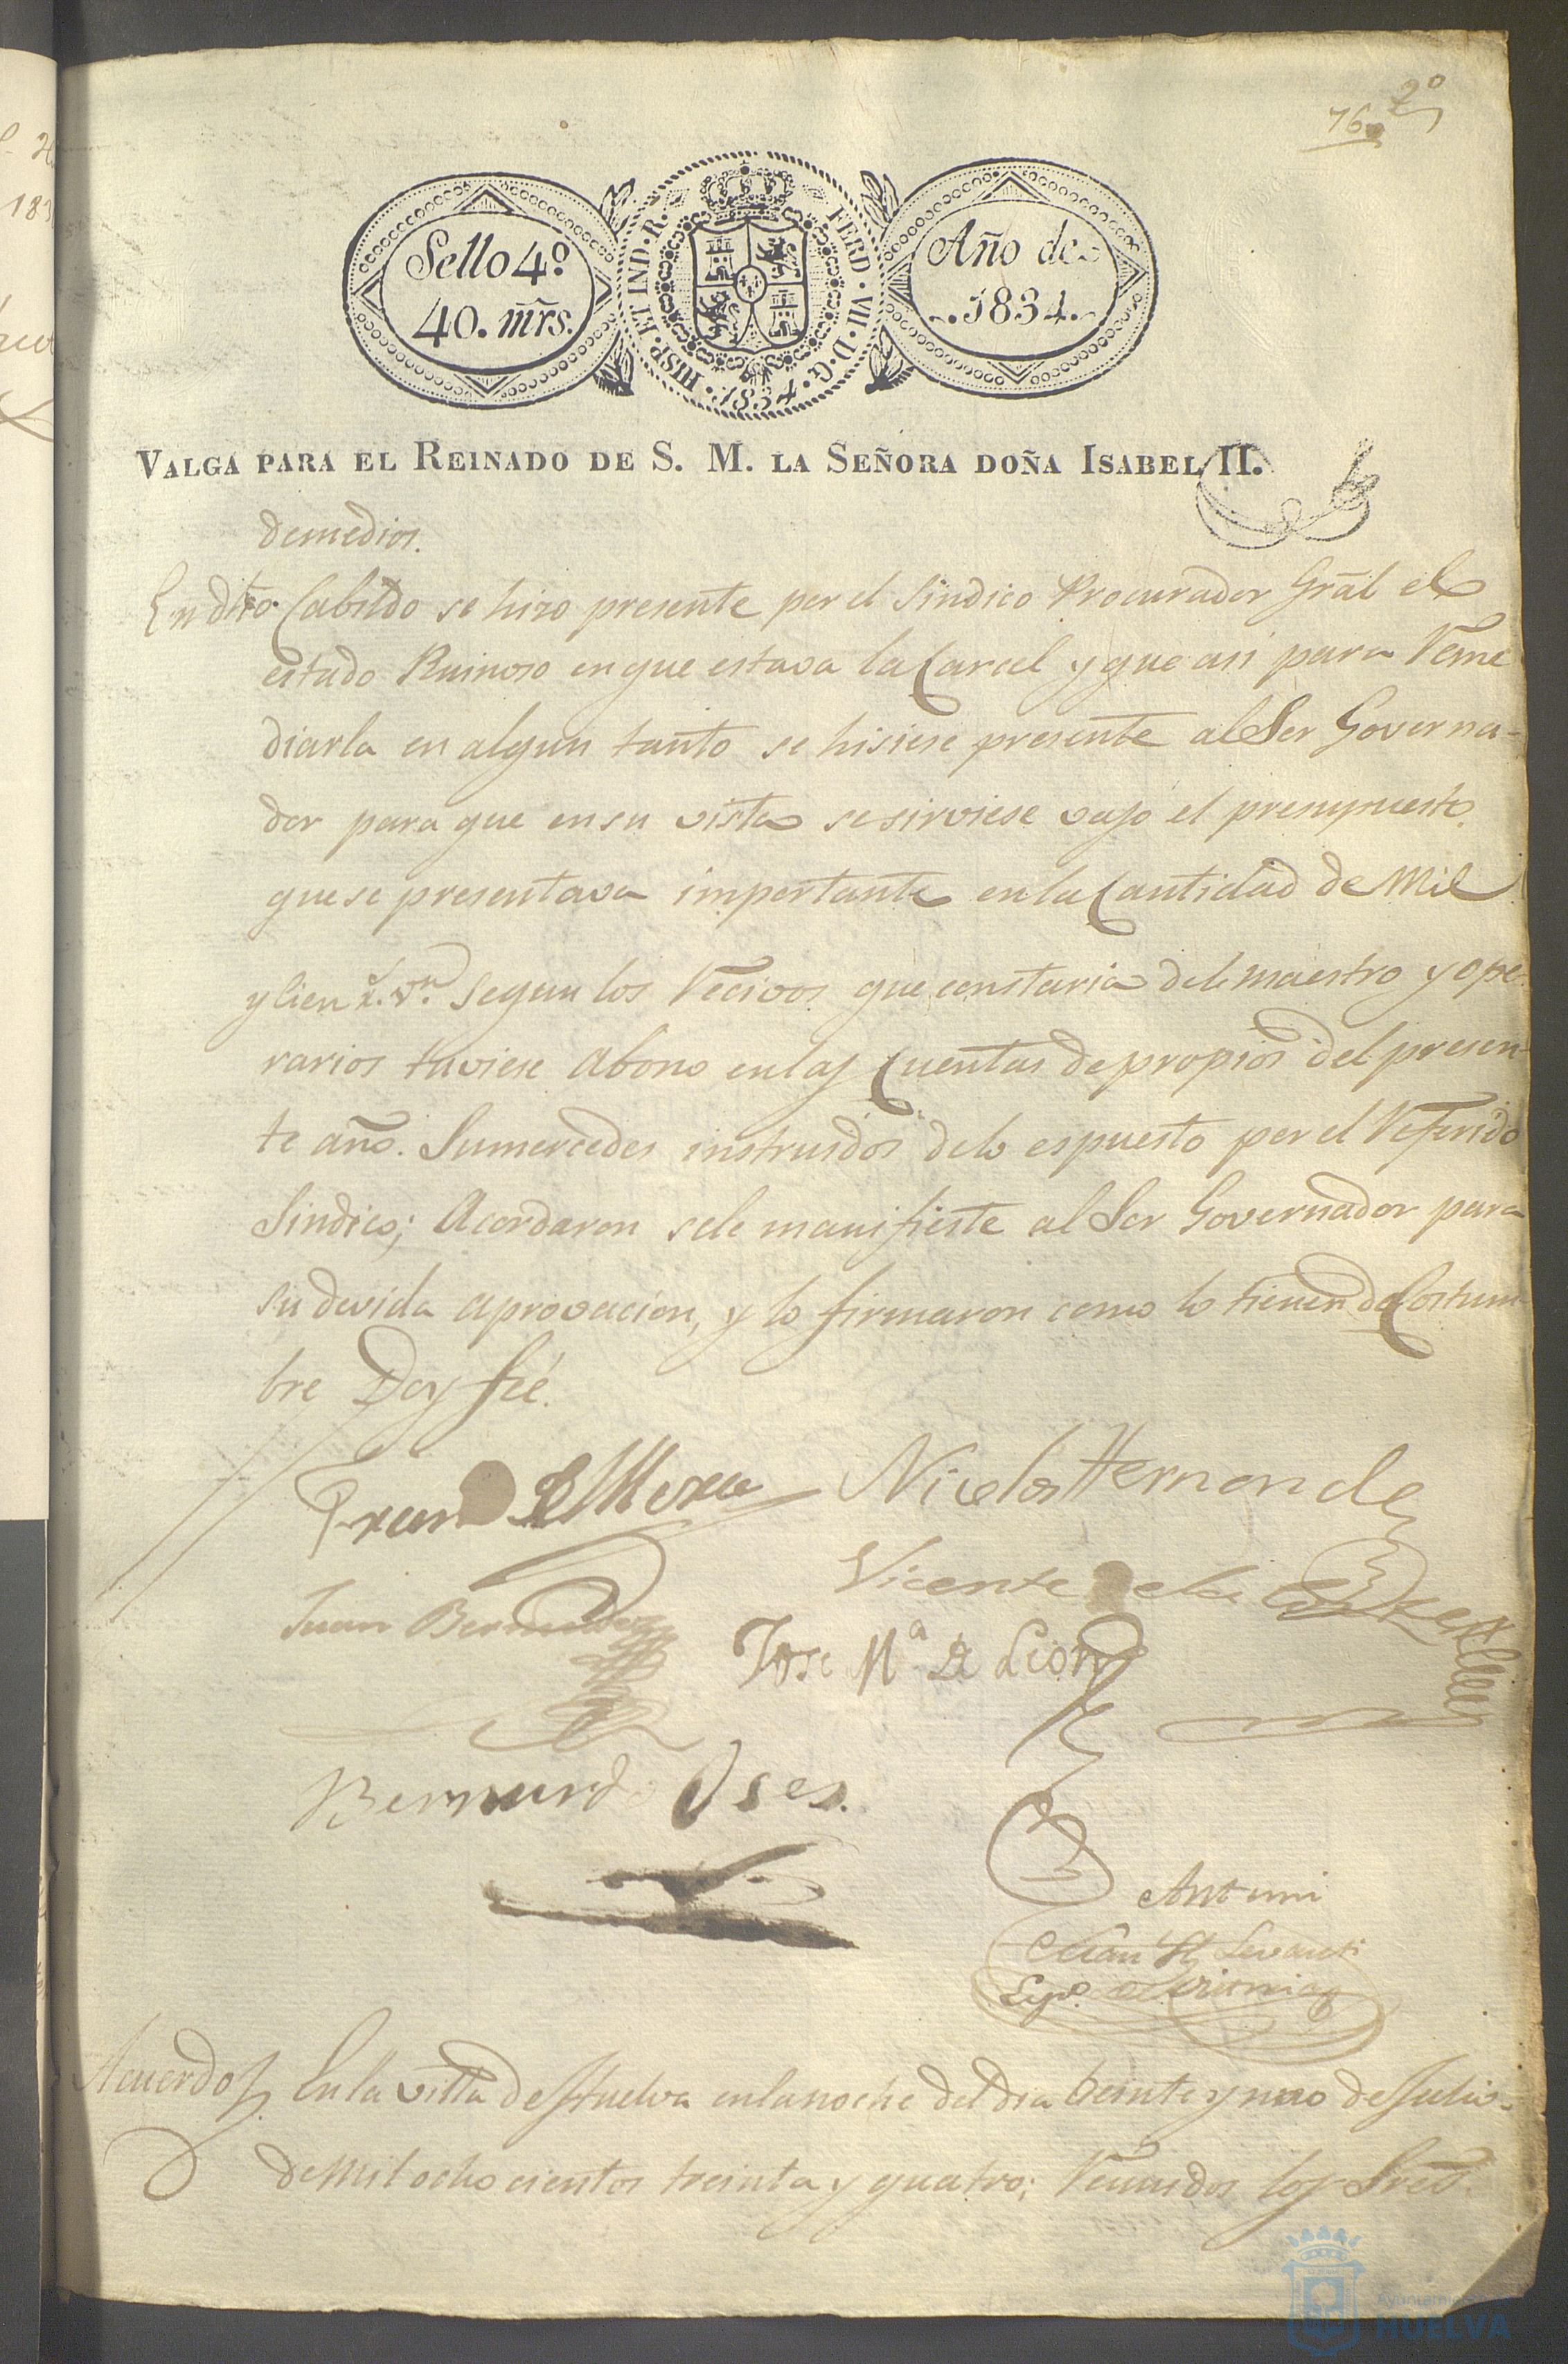 76 2º
Sello 4º
40. mr̃s.
HISP. ET IND. R.
FERD. VII. D. G.
1834
Año de
1834.
VALGA PARA EL REINADO DE S. M. LA SEÑORA DOÑA ISABEL II.
demedios.
En dho Cabildo se hizo presente por el Sindico Procurador Grãl el
estado Ruinoso en que estava la Carcel y que asi para Reme
diarla en algun tanto se hisiese presente al Sor Governa-
dor para que en su vista se sirviese vajo el presupuesto
que se presentava importante en la Cantidad de Mil
y Cien r.s v.n segun los Recivos que constaria del maestro y ope-
rarios tuviese Abono en las Cuentas de propios del presen-
te año. Sumercedes instruidos delo espuesto por el Referido
Sindico; Acordaron sele manifieste al Sor Governador para
su devida aprovacion, y lo firmaron como lo tienen de Costum
bre Doy fée.
Fran.co de Mora
Nicolas Hernande
Juan Bermudez
Vicente de la
Jose M.a de Leon
Bernardo Oses.
Ante mi
Acuerdo En la villa de Huelva en la noche del dia beinte y uno de Julio
de Mil ocho cientos treinta y quatro; Reunidos los Sres.
Ayuntamiento
HUELVA